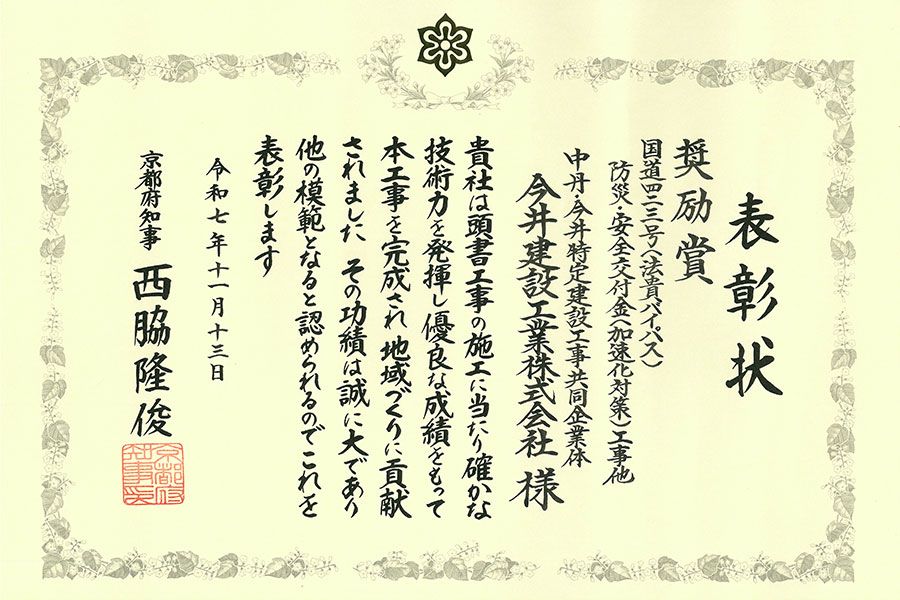 表彰状
奨励賞
国道四二三号(法貴バイパス)
防災・安全交付金(加速化対策)工事他
中丹・今井特定建設工事共同企業体
今井建設工業株式会社 様
貴社は頭書工事の施工に当たり確かな
技術力を発揮し優良な成績をもって
本工事を完成され 地域づくりに貢献
されました その功績は誠に大であり
他の模範となると認められるのでこれを
表彰します
令和七年十一月十三日
京都府知事 西脇隆俊
京都府知事之印